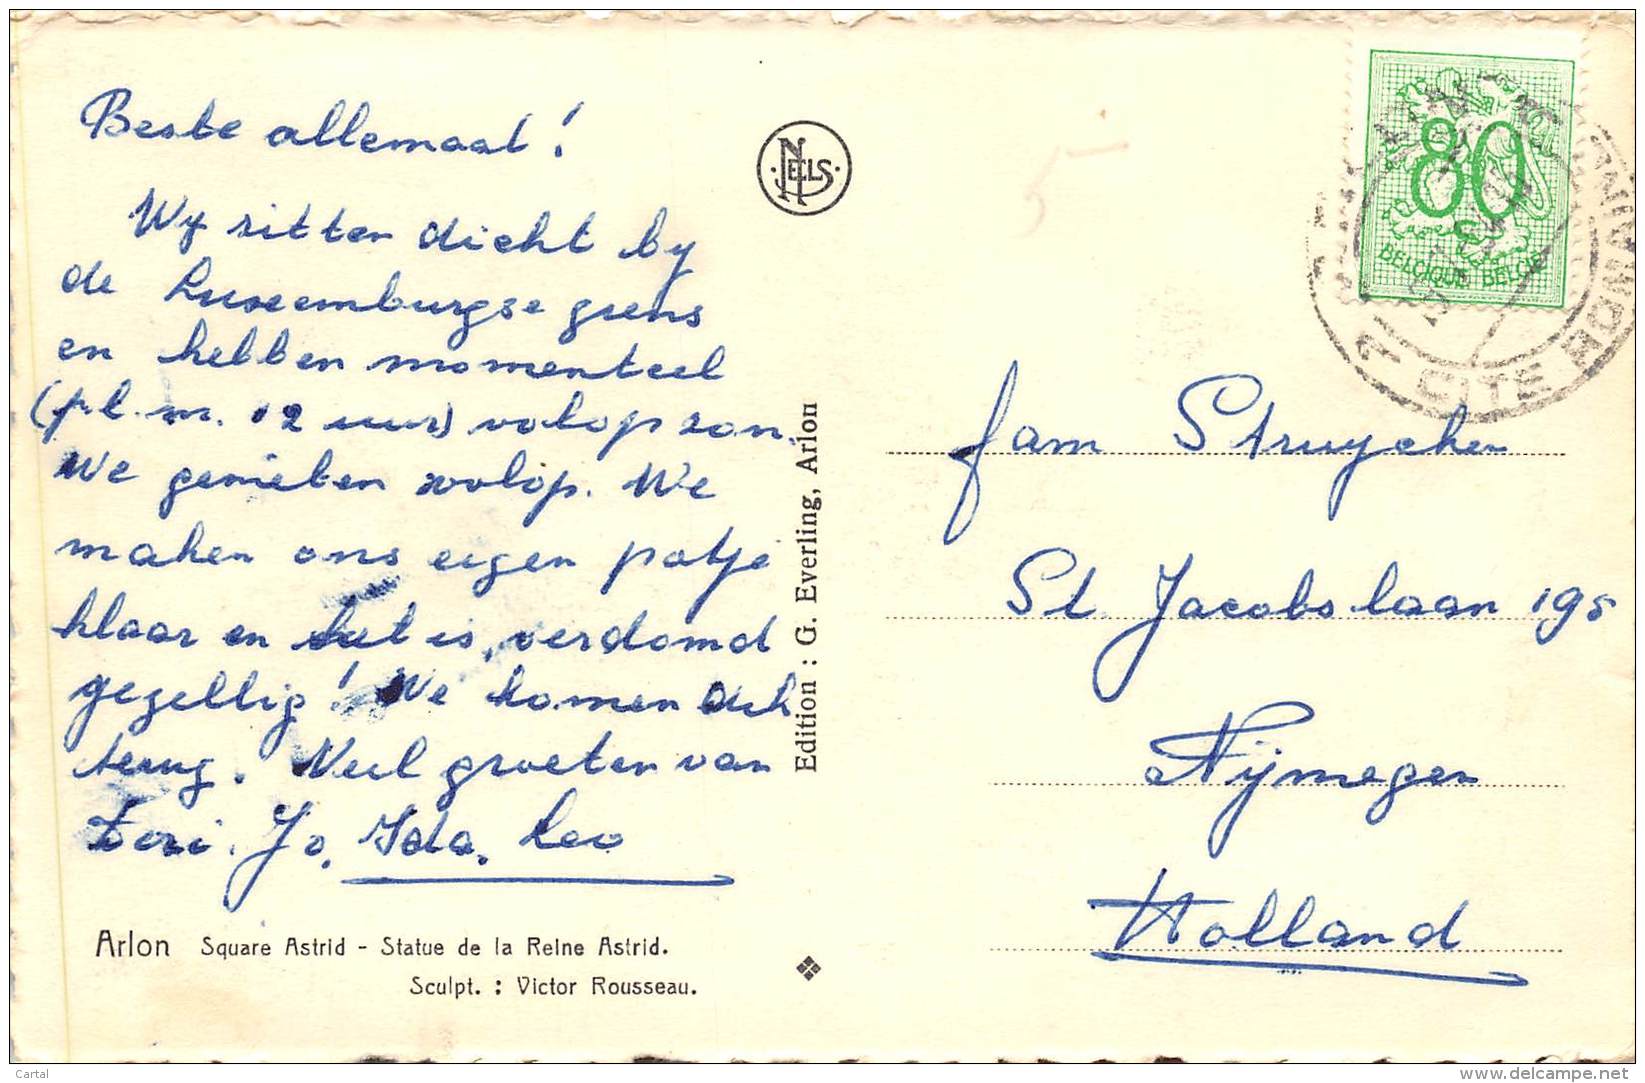 Beste allemaal!
Wij zitten dicht by
de Luxemburgse grens
en hebben momenteel
(p.l.m. 12 uur) volop zon.
We genieten volop. We
maken ons eigen potje
klaar en het is verdomd
gezellig! We komen
terug. Veel groeten van
Jo, Ida, Leo
Arlon Square Astrid - Statue de la Reine Astrid.
Sculpt. : Victor Rousseau.
NELS
Edition : G. Everling, Arlon
80
BELGIQUE BELGIE
fam Struycken
St. Jacobslaan 195
Nijmegen
Holland
Cartal
www.delcampe.net